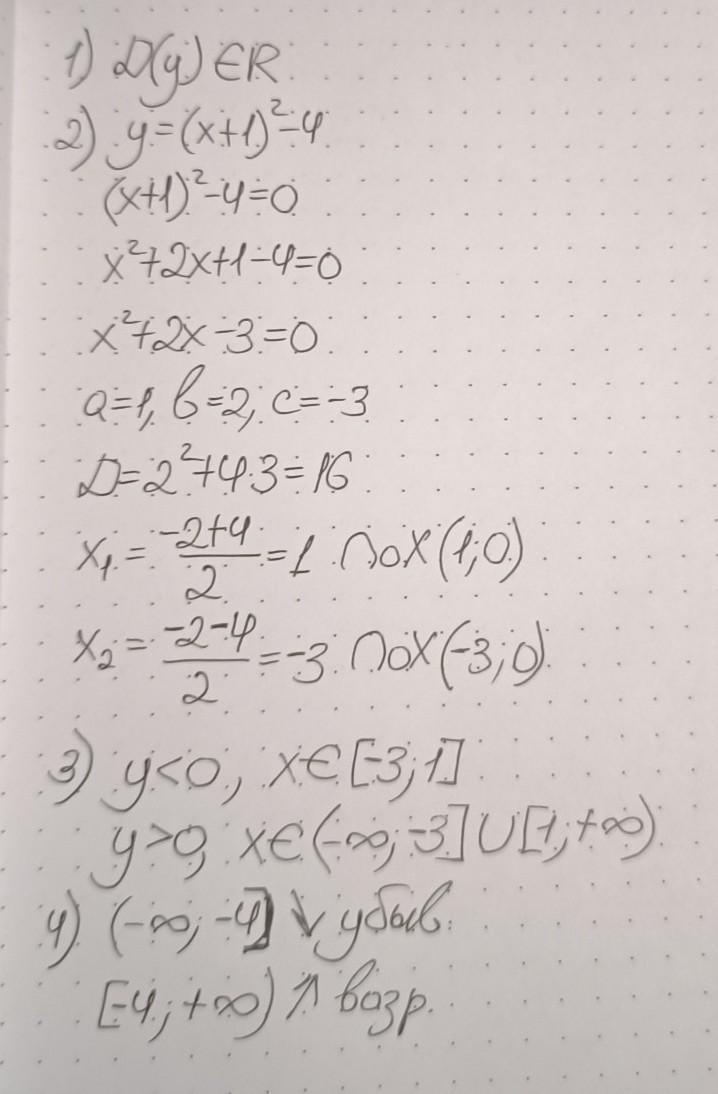 1) D(y) ∈ R
2) y=(x+1)²-4
(x+1)²-4=0
x²+2x+1-4=0
x²+2x-3=0
a=1, b=2, c=-3
D=2²+4·3=16
x₁ = (-2+4)/2 = 1 ПоХ(1;0)
x₂ = (-2-4)/2 = -3 ПоХ(-3;0)
3) y<0, x∈[-3;1]
y>0, x∈(-∞;-3]∪[1;+∞)
4) (-∞;-4] ↓ убыв.
[-4;+∞) ↗ возр.